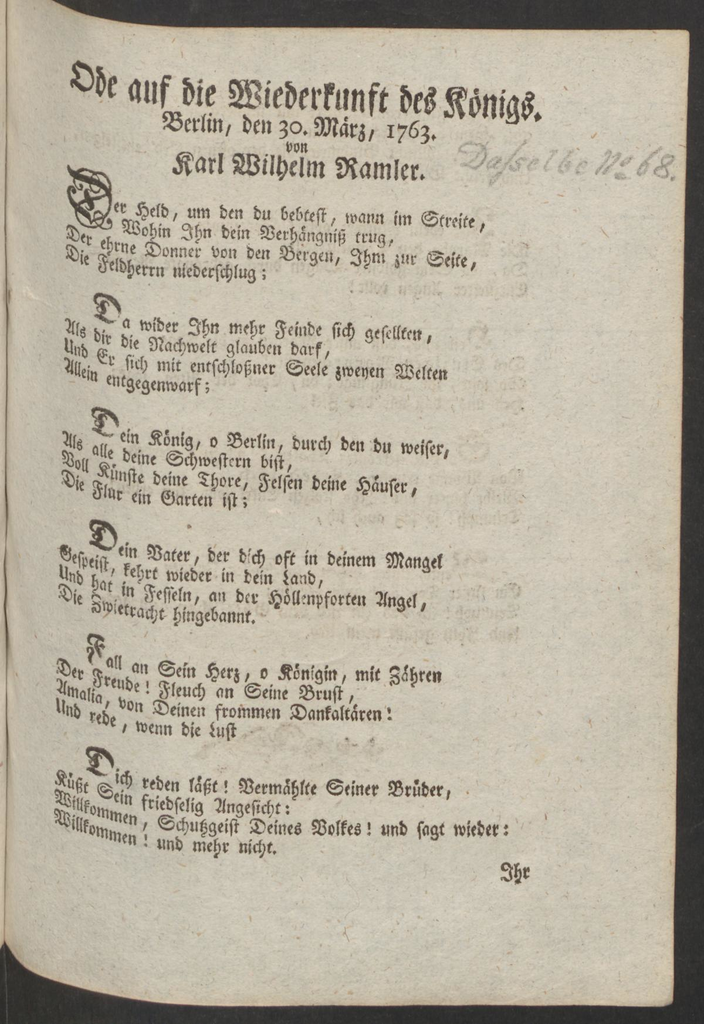 Ode auf die Wiederkunft des Königs.
Berlin, den 30. März, 1763.
von
Karl Wilhelm Ramler.
Dasselbe No 68.
Der Held, um den du bebtest, wann im Streite,
Wohin Ihn dein Verhängniß trug,
Der ehrne Donner von den Bergen, Ihm zur Seite,
Die Feldherrn niederschlug;
Da wider Ihn mehr Feinde sich gesellten,
Als dir die Nachwelt glauben darf,
Und Er sich mit entschloßner Seele zweyen Welten
Allein entgegenwarf;
Dein König, o Berlin, durch den du weiser,
Als alle deine Schwestern bist,
Voll Künste deine Thore, Felsen deine Häuser,
Die Flur ein Garten ist;
Dein Vater, der dich oft in deinem Mangel
Gespeist, kehrt wieder in dein Land,
Und hat in Fesseln, an der Höllenpforten Angel,
Die Zwietracht hingebannt.
Fall an Sein Herz, o Königin, mit Zähren
Der Freude! Fleuch an Seine Brust,
Amalia, von Deinen frommen Dankaltären!
Und rede, wenn die Lust
Dich reden läßt! Vermählte Seiner Brüder,
Küßt Sein friedselig Angesicht:
Willkommen, Schutzgeist Deines Volkes! und sagt wieder:
Willkommen! und mehr nicht.
Ihr